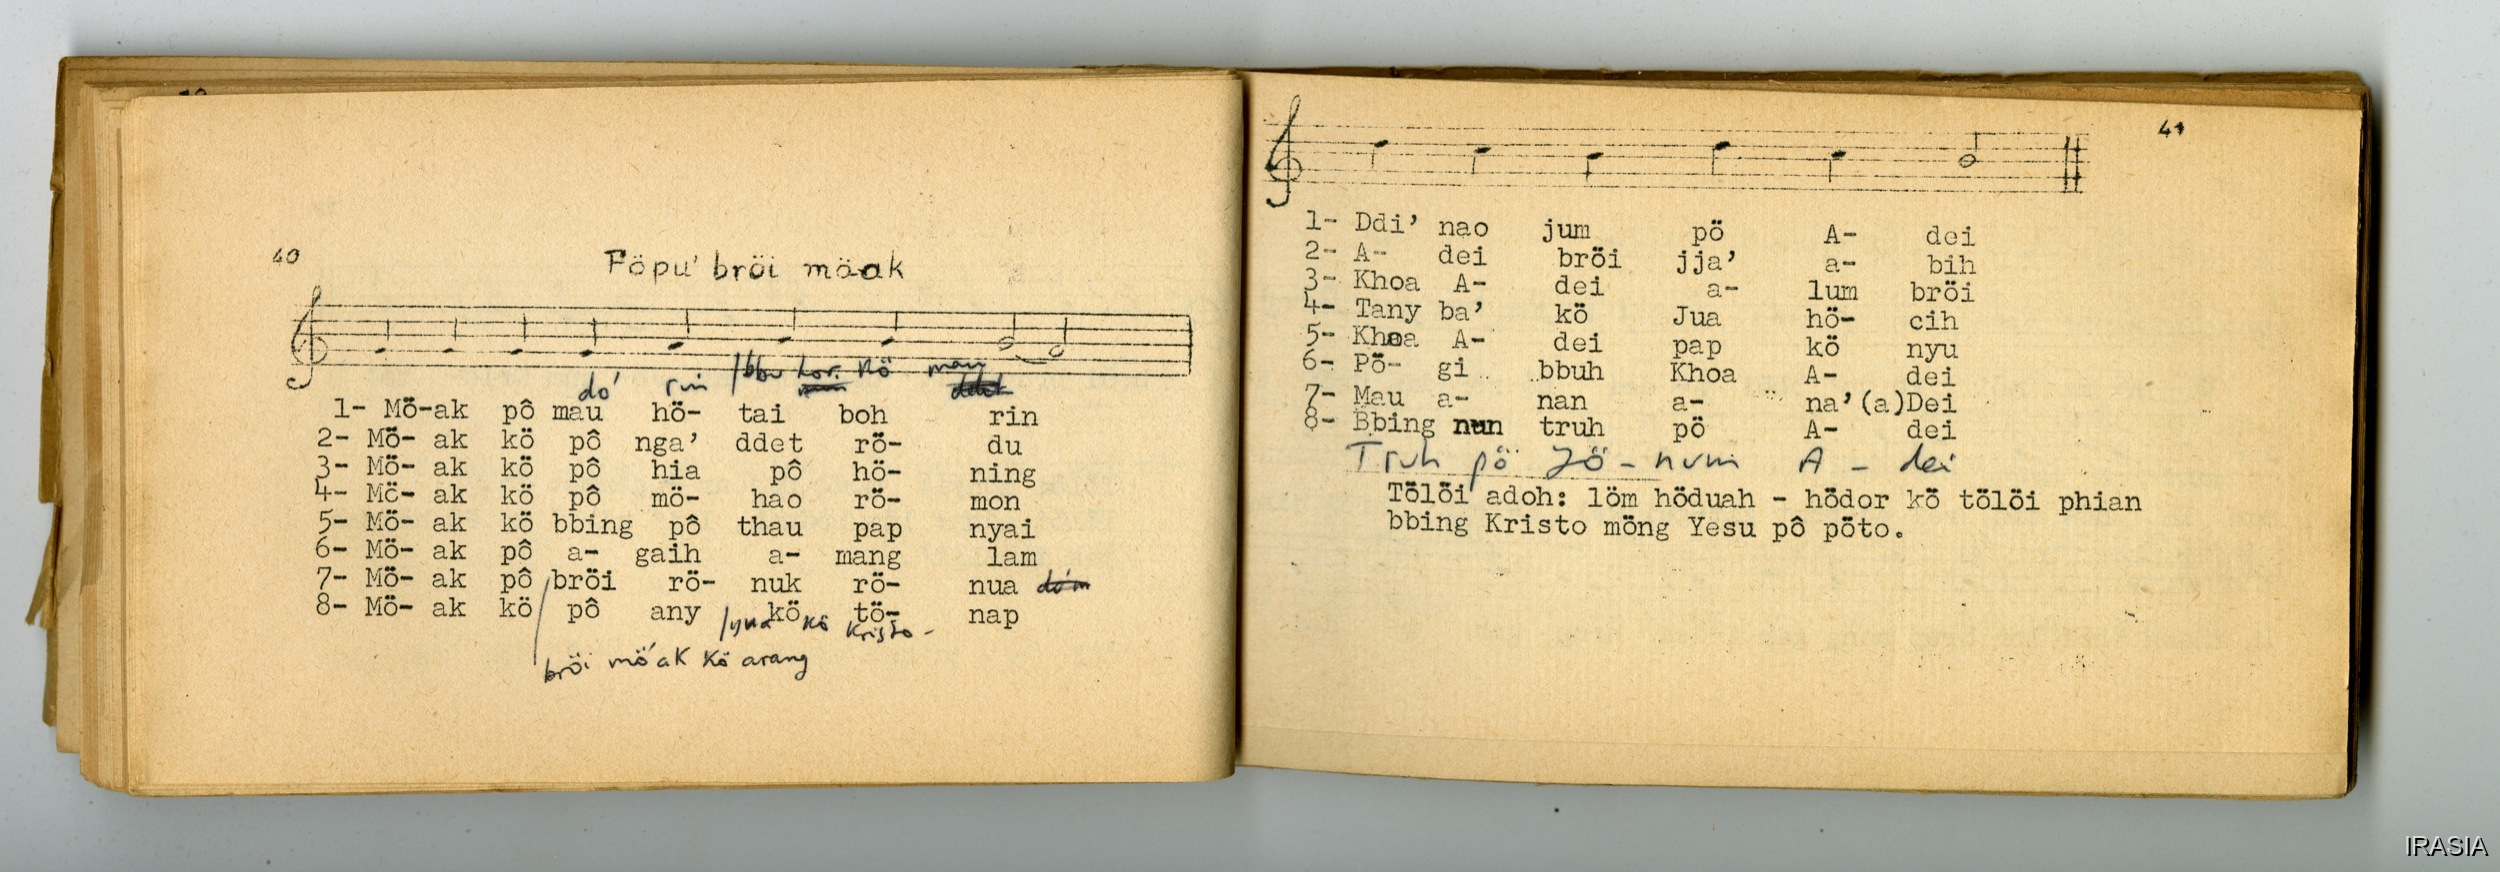 40
Föpu' bröi möak
dó rin /bbu hor. kö mau
1- Mö-ak pô mau hö- tai boh rin
2- Mö- ak kö pô nga' ddet rö- du
3- Mö- ak kö pô hia pô hö- ning
4- Mö- ak kö pô mö- hao rö- mon
5- Mö- ak kö bbing pô thau pap nyai
6- Mö- ak pô a- gaih a- mang lam
7- Mö- ak pô bröi rö- nuk rö- nua
8- Mö- ak kö pô any kö tö- nap
kö Kristo-
bröi mö'ak kö arang
41
1- Ddi' nao jum pö A- dei
2- A- dei bröi jja' a- bih
3- Khoa A- dei a- lum bröi
4- Tany ba' kö Jua hö- cih
5- Khoa A- dei pap kö nyu
6- Pö- gi bbuh Khoa A- dei
7- Mau a- nan a- na'(a)Dei
8- Bbing nun truh pö A- dei
Truh pö Jö- num A - dei
Tölöi adoh: löm höduah - hödor kö tölöi phian
bbing Kristo möng Yesu pô pöto.
IRASIA